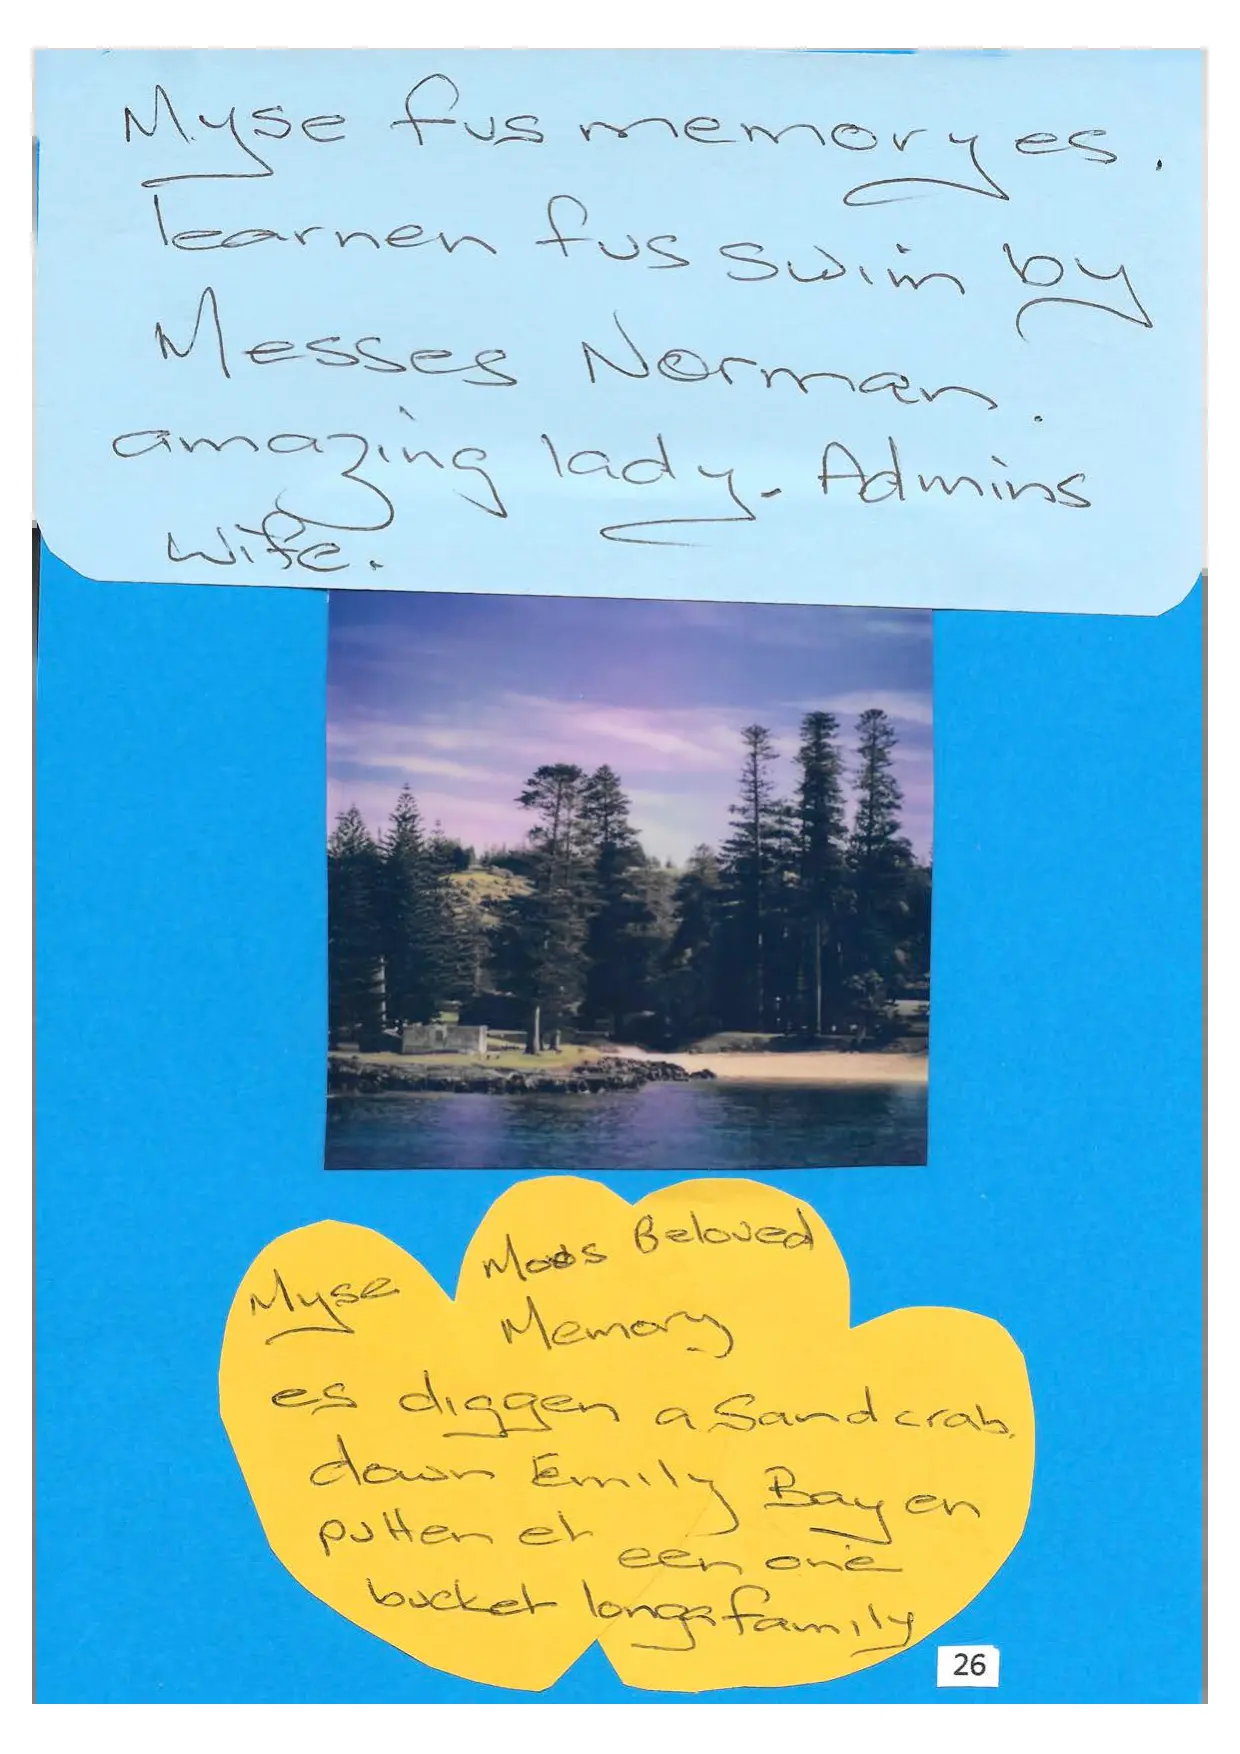 Myse fus memory es.
learnen fus swim by
Messes Norman.
amazing lady. Admins
wife.
Myse Moos Beloved
Memory
es diggen a Sandcrab.
down Emily Bay en
putten et een one
bucket longa family
26